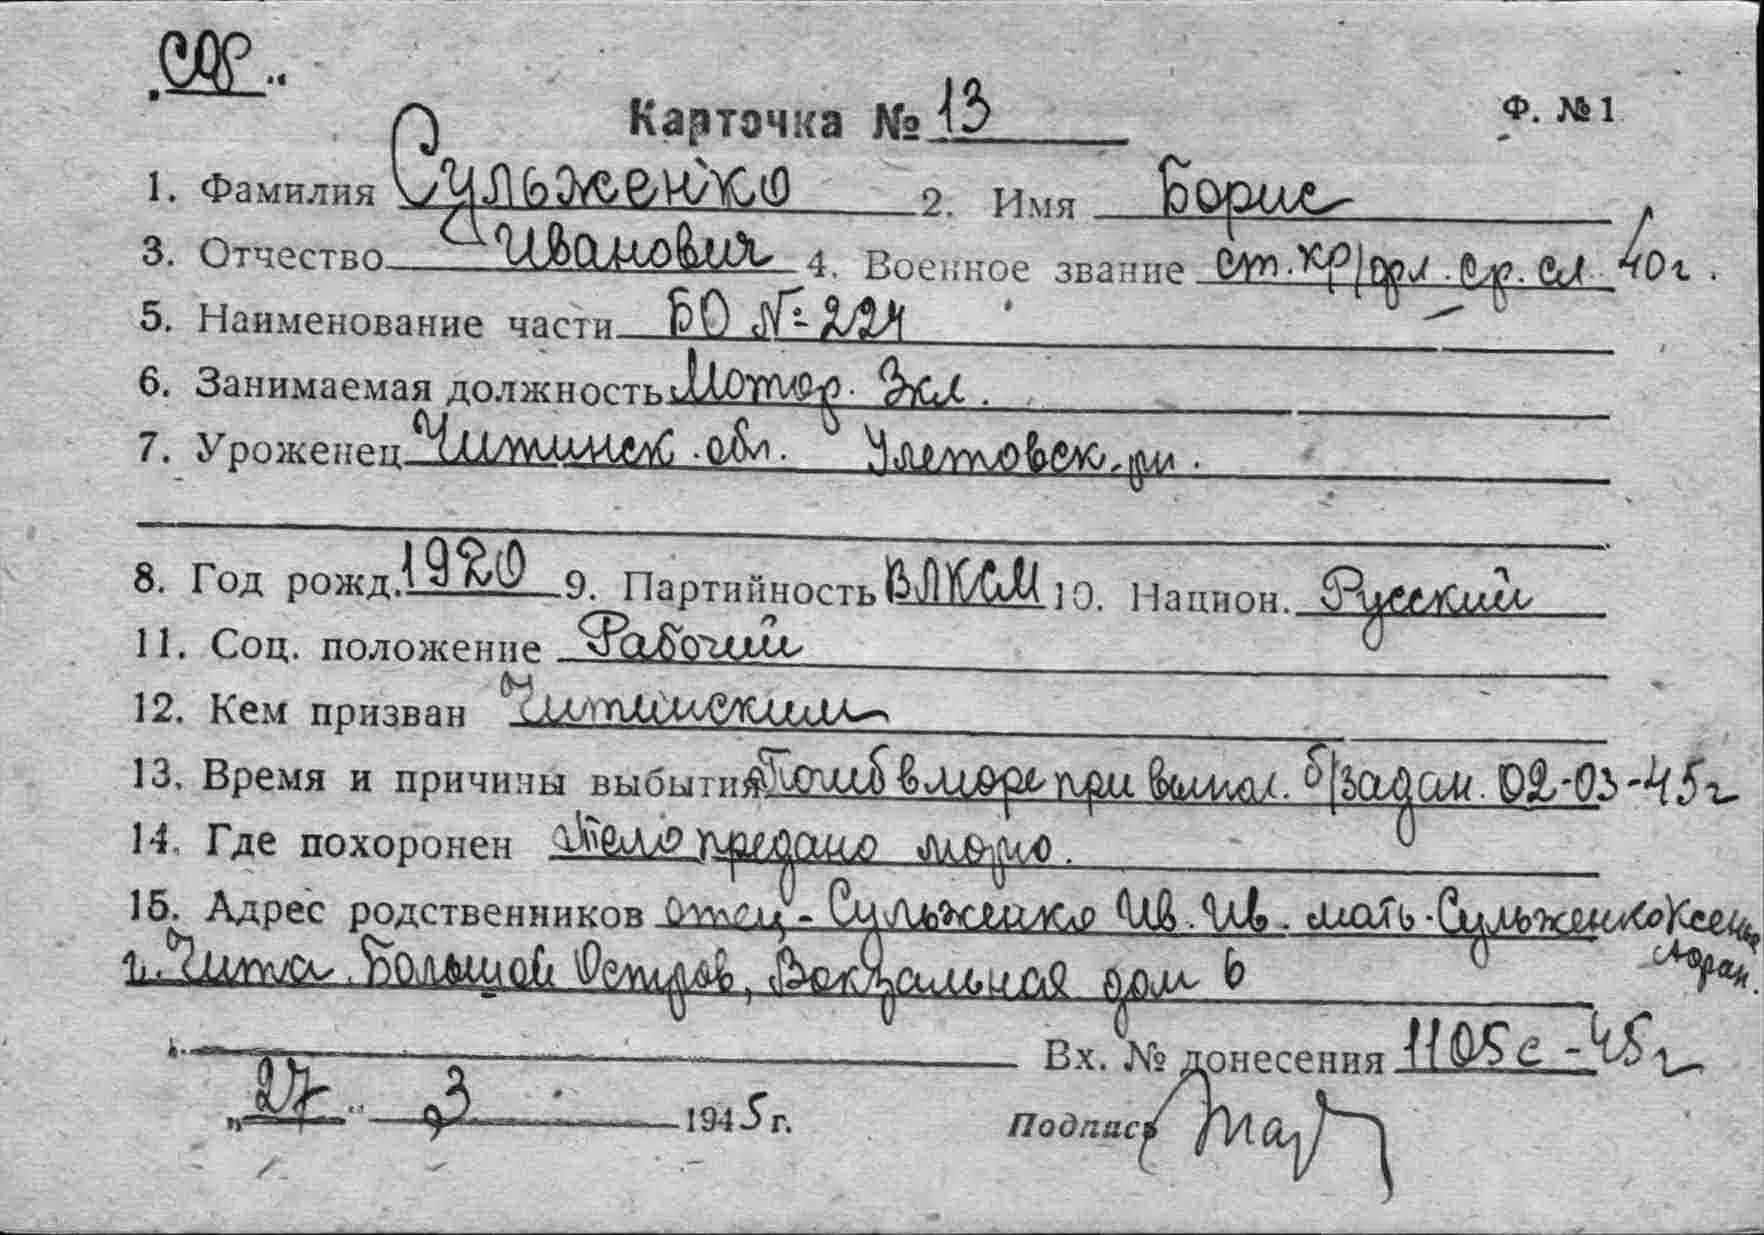 Карточка № 13
Ф. № 1
1. Фамилия Сульженко 2. Имя Борис
3. Отчество Иванович 4. Военное звание ст. кр/фл. ср. сл. 40 г.
5. Наименование части БО № 224
6. Занимаемая должность Мотор. Экл.
7. Уроженец Читинск. обл. Улетовск. рн.
8. Год рожд. 1920 9. Партийность ВЛКСМ 10. Национ. Русский
11. Соц. положение Рабочий
12. Кем призван Читинским
13. Время и причины выбытия Погиб в море при выпол. б/задан. 02-03-45 г
14. Где похоронен Тело предано морю.
15. Адрес родственников отец - Сульженко Ив. Ив. мать - Сульженко Ксенья
г. Чита. Большой Остров, Вокзальная дом 6
Вх. № донесения 1105с - 45 г
„27“ 3 1945 г. Подпись